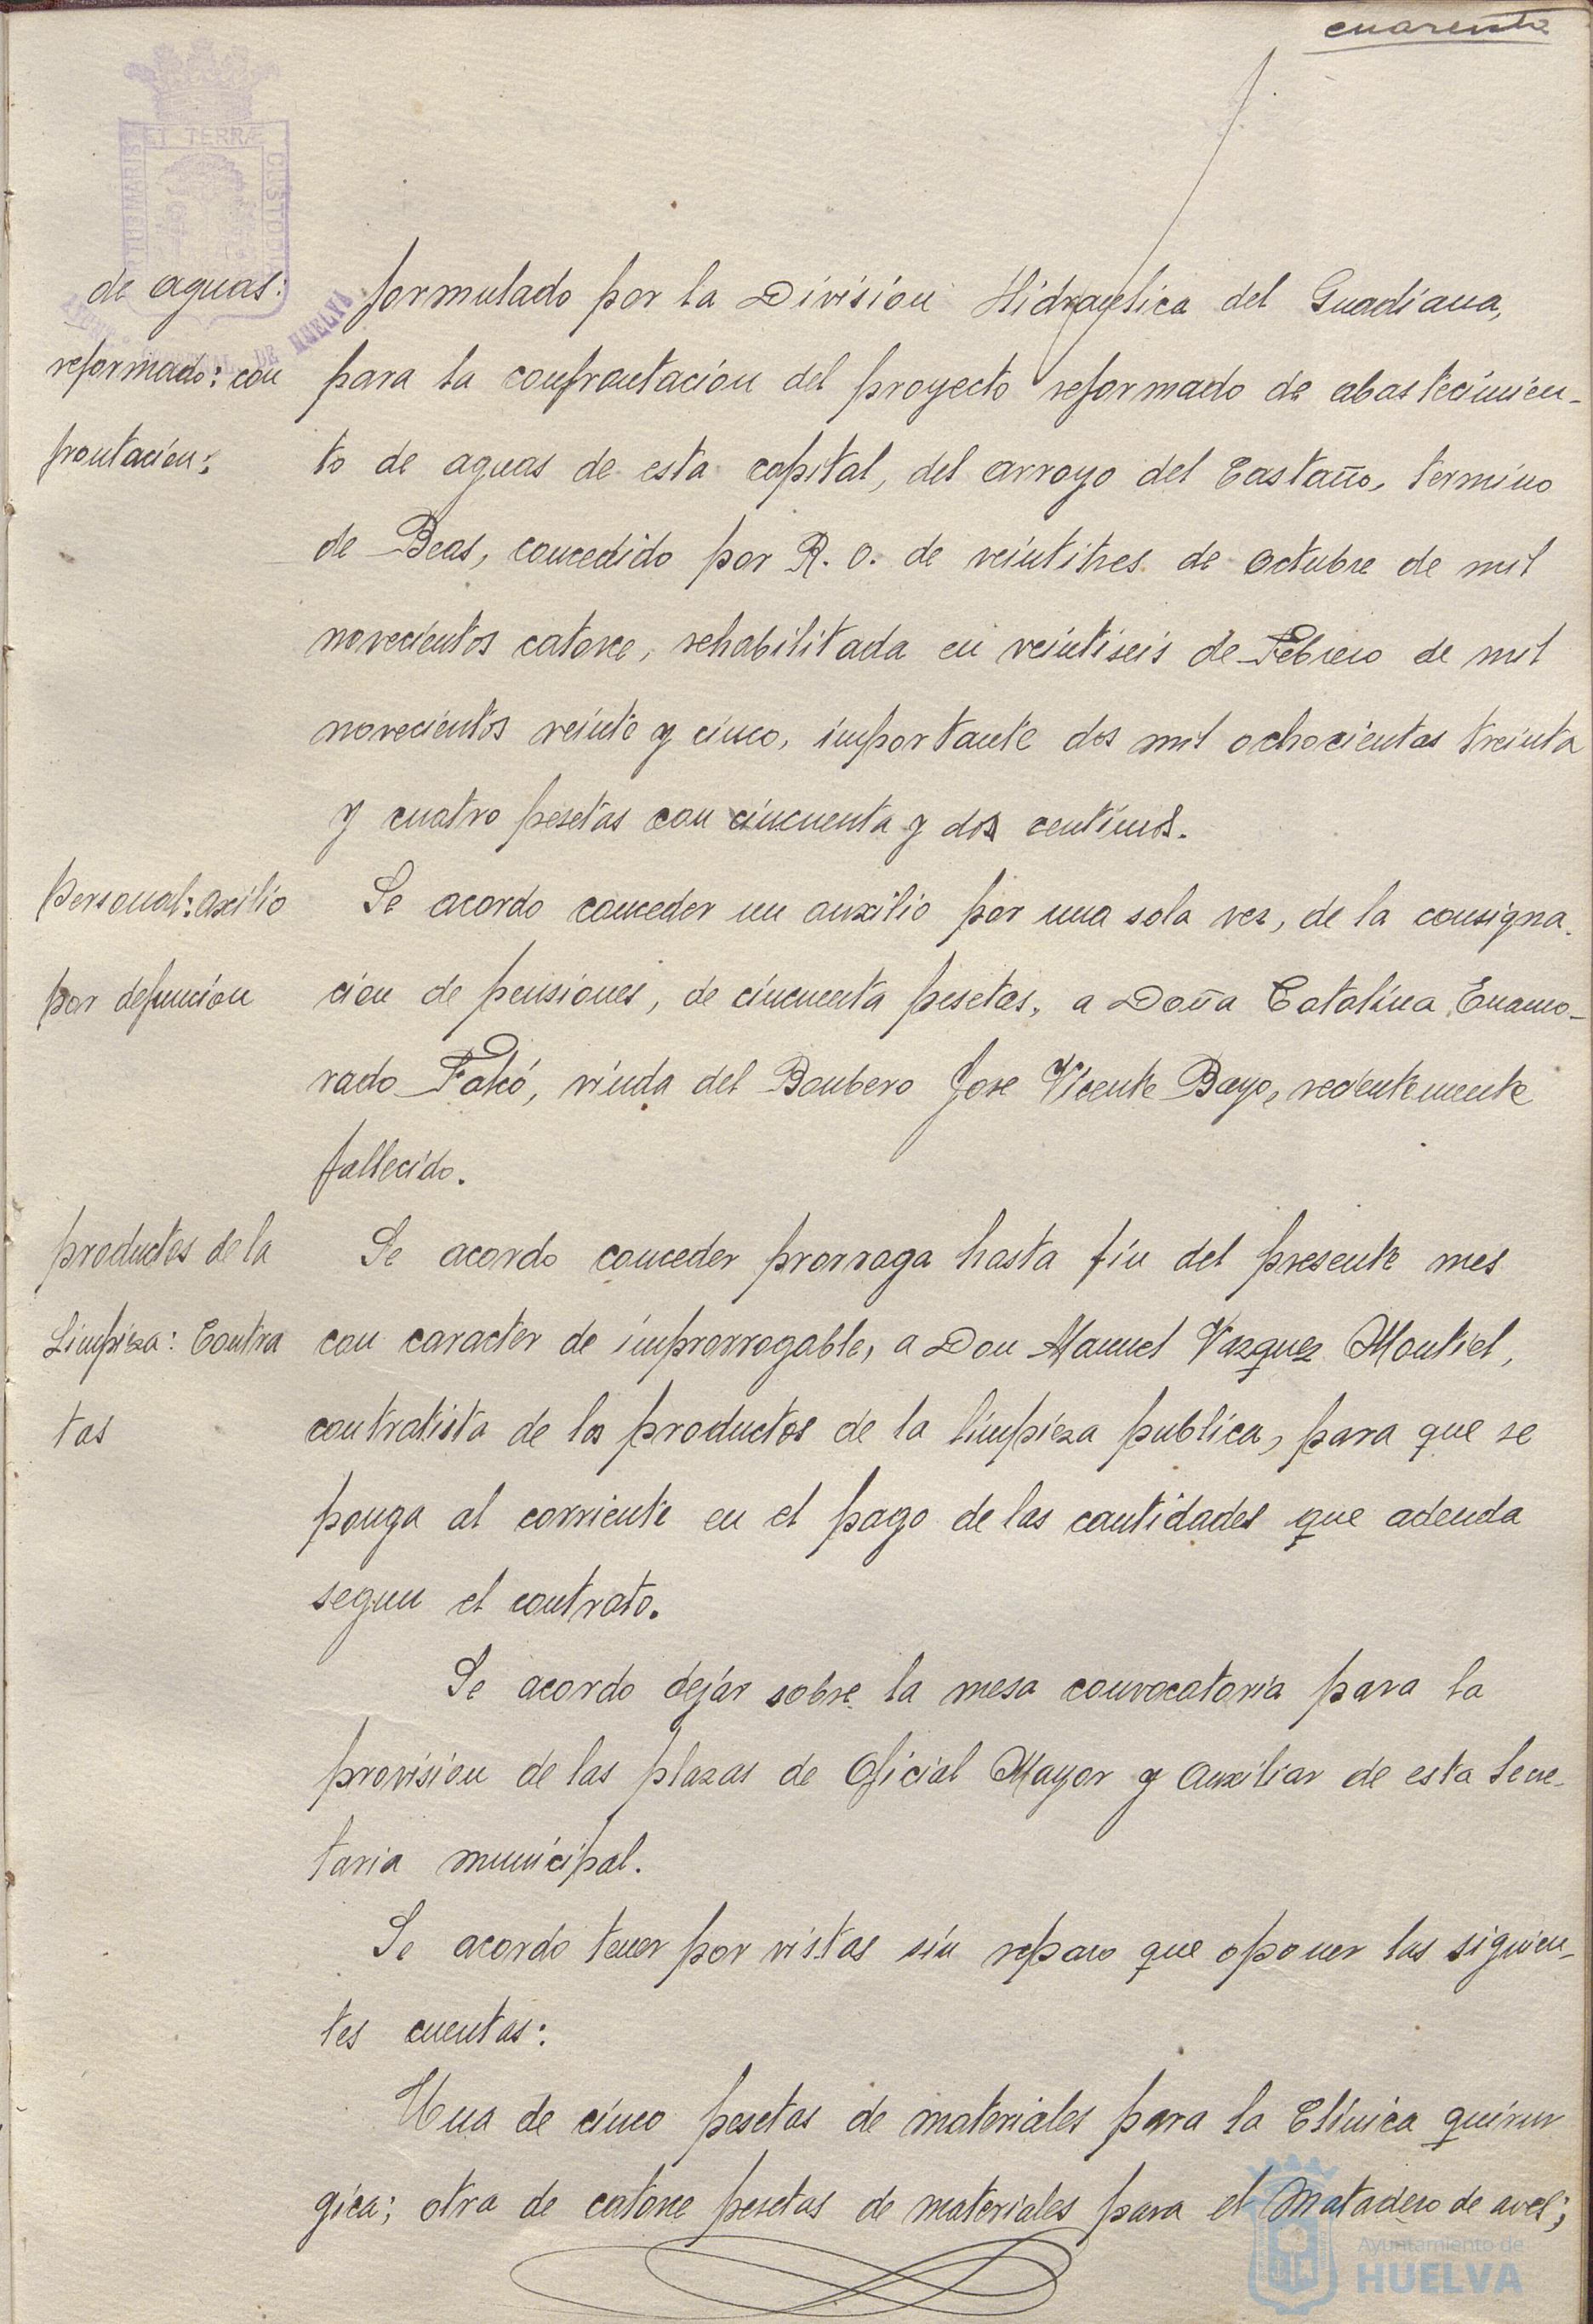 cuarenta
ET TERRÆ
PORTUS MARIS
CUSTODIA
DE HUELVA
de aguas:
reformado: con
frontacion:
formulado por la Division Hidraulica del Guadiana,
para la confrontacion del proyecto reformado de abastecimien-
to de aguas de esta capital, del arroyo del Castaño, termino
de Beas, concedido por R. O. de veintitres de octubre de mil
novecientos catorce, rehabilitada en veintiseis de Febrero de mil
novecientos veinte y cinco, importante dos mil ochocientas treinta
y cuatro pesetas con cincuenta y dos centimos.
Personal: axilio
por defuncion
Se acordo conceder un auxilio por una sola vez, de la consigna-
cion de pensiones, de cincuenta pesetas, a Doña Catalina Enamo-
rado Falcó, viuda del Bombero Jose Vicente Bayo, recientemente
fallecido.
productos de la
Limpieza: Contra
tas
Se acordo conceder prorroga hasta fin del presente mes
con caracter de improrrogable, a Don Manuel Vazquez Montiel,
contratista de los productos de la limpieza publica, para que se
ponga al corriente en el pago de las cantidades que adeuda
segun el contrato.
Se acordo dejar sobre la mesa convocatoria para la
provision de las plazas de Oficial Mayor y Auxiliar de esta Secre-
taria municipal.
Se acordo tener por vistas sin reparo que oponer las siguien-
tes cuentas:
Una de cinco pesetas de materiales para la Clinica quirur
gica; otra de catorce pesetas de materiales para el Matadero de aves;
Ayuntamiento de
HUELVA